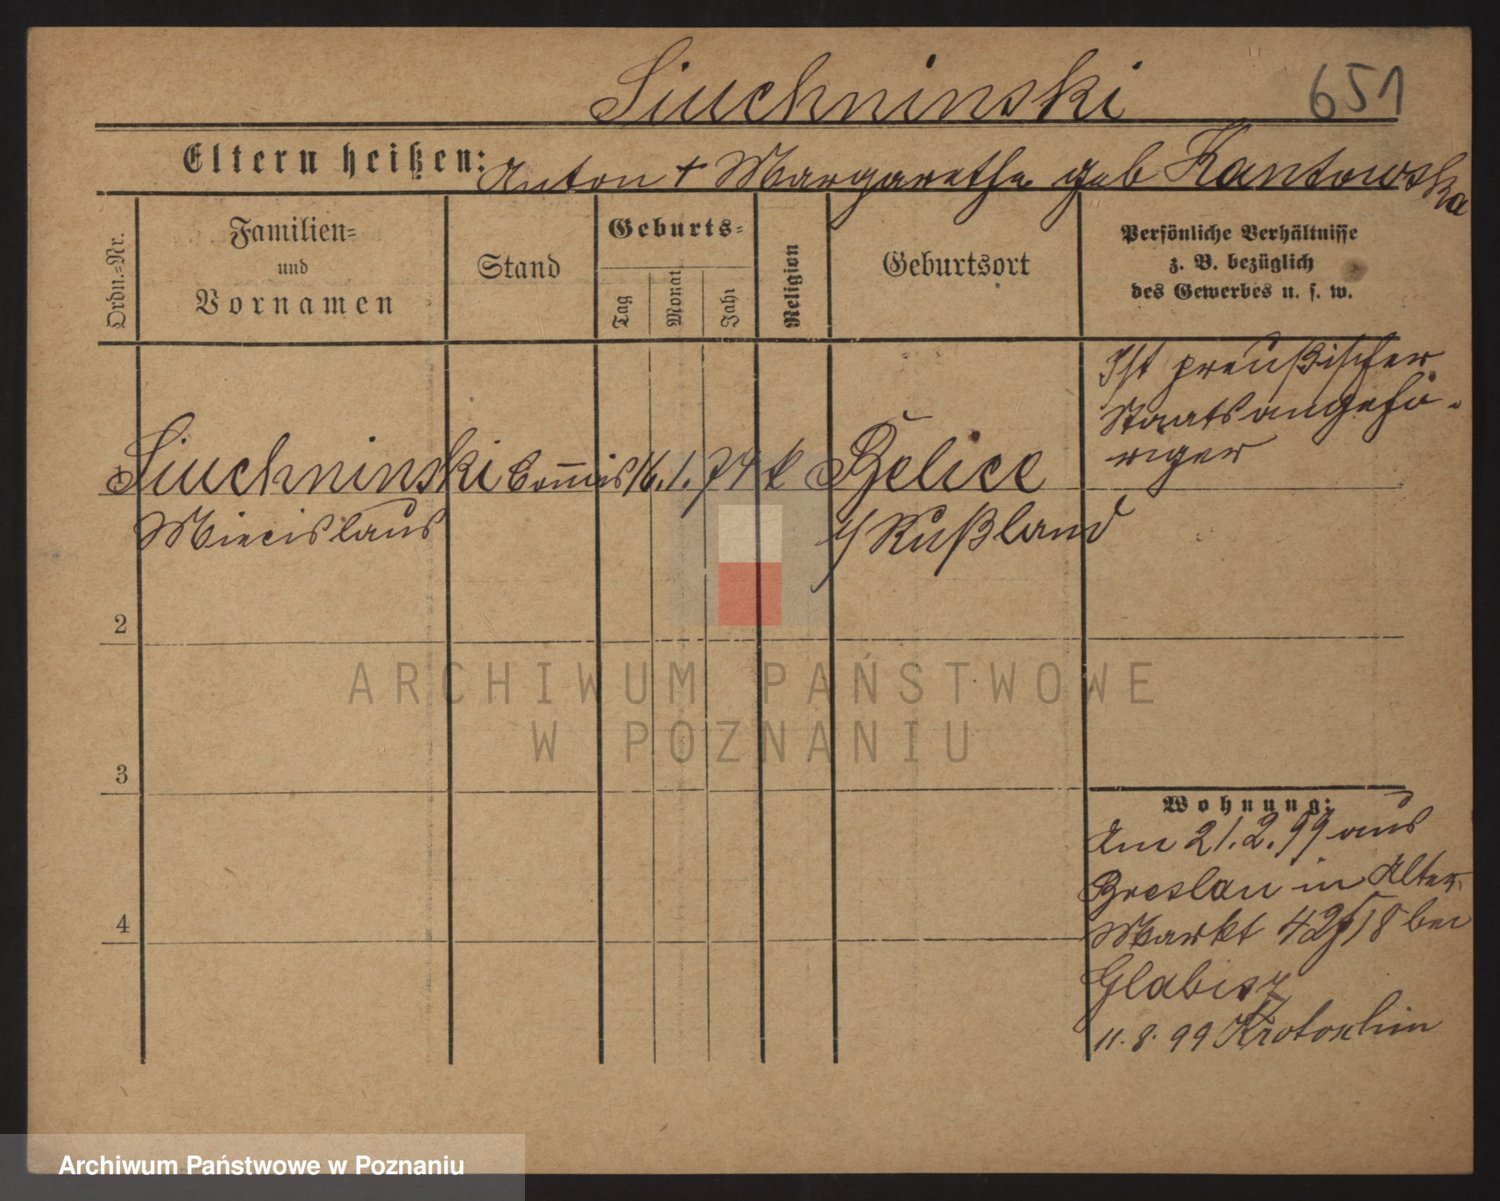 Siuchninski 651
Eltern heißen: Anton + Margarethe geb Kantowska
Ordn.=Nr.
Familien=
und
Vornamen
Stand
Geburts=
Tag
Monat
Jahr
Religion
Geburtsort
Persönliche Verhältnisse
z. B. bezüglich
des Gewerbes u. s. w.
Ist preußischer
Staatsangehö-
riger
Siuchninski Commis 16. 1. 74 k Belice
Miecislaus i/Rußland
2
3
4
Wohnung:
Am 21.2.99 aus
Breslau in Alter
Markt 42 18 bei
Glabisz
11. 8. 99 Krotoschin
ARCHIWUM PAŃSTWOWE
W POZNANIU
Archiwum Państwowe w Poznaniu